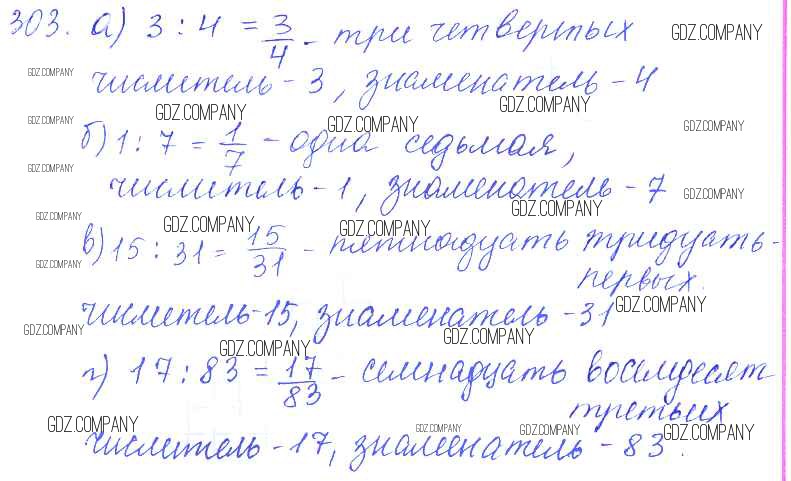 303. а) 3 : 4 = 3/4 - три четвертых GDZ.COMPANY
GDZ.COMPANY
числитель - 3, знаменатель - 4
GDZ.COMPANY GDZ.COMPANY
GDZ.COMPANY GDZ.COMPANY GDZ.COMPANY
б) 1 : 7 = 1/7 - одна седьмая,
GDZ.COMPANY
числитель - 1, знаменатель - 7 GDZ.COMPANY
GDZ.COMPANY GDZ.COMPANY GDZ.COMPANY GDZ.COMPANY
в) 15 : 31 = 15/31 - пятнадцать тридцать-
GDZ.COMPANY
первых.
GDZ.COMPANY
числитель - 15, знаменатель - 31
GDZ.COMPANY GDZ.COMPANY
GDZ.COMPANY
г) 17 : 83 = 17/83 - семнадцать восемдесят
третьих
GDZ.COMPANY GDZ.COMPANY GDZ.COMPANY GDZ.COMPANY
числитель - 17, знаменатель - 83.